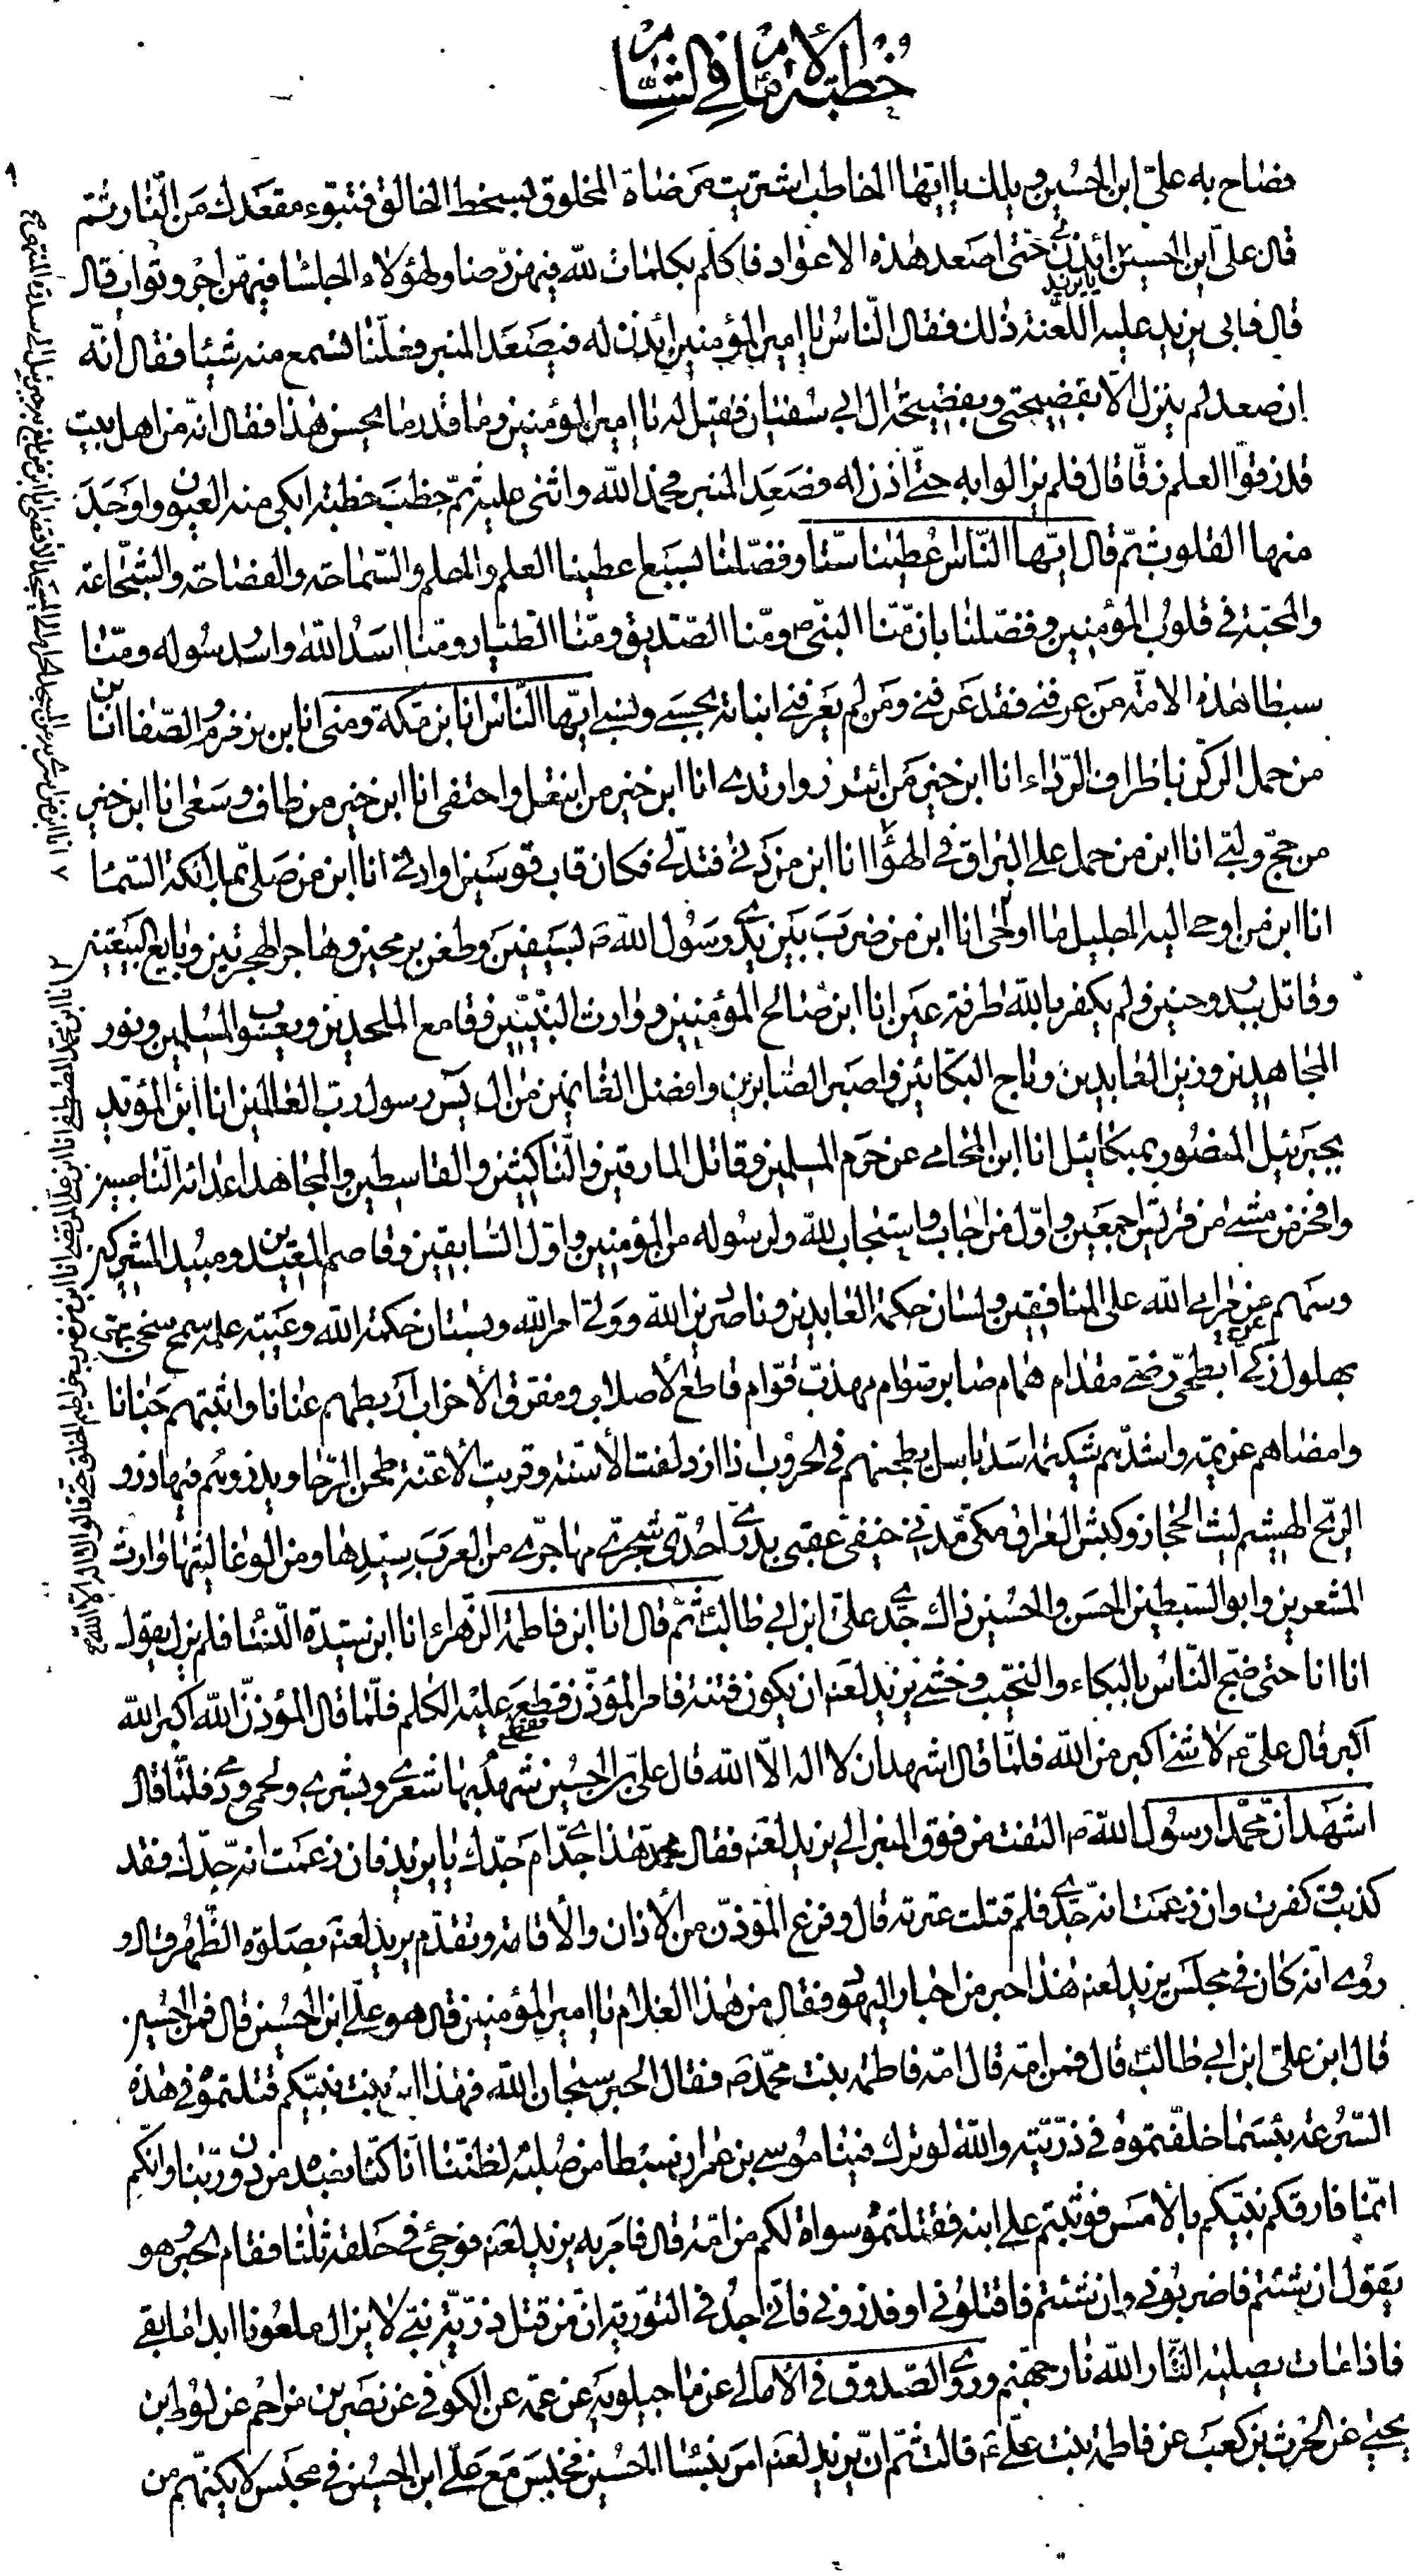 خطبة الإمام في الشام
فصاح به علي ابن الحسين ويلك يا ايها الخاطب اشتريت مرضاة المخلوق بسخط الخالق فتبوء مقعدك من النار ثم
قال علي ابن الحسين يا يزيد ائذن لي حتى اصعد هذه الاعواد فاكلم بكلمات لله فيهن رضا ولهؤلاء الجلساء فيهن اجر وثواب قال
قال فابى يزيد عليه اللعنة ذلك فقال الناس يا امير المؤمنين ائذن له فيصعد المنبر فعلنا نسمع منه شيئا فقال انه
ان صعد لم ينزل الا بفضيحتي وبفضيحة ال ابي سفيان فقيل له يا امير المؤمنين وما قدر ما يحسن هذا فقال انه من اهل بيت
قد زقوا العلم زقا قال فلم يزالوا به حتى اذن له فصعد المنبر فحمد الله واثنى عليه ثم خطب خطبة ابكى منه العيون واوجد
منها القلوب ثم قال ايها الناس اعطينا ستا وفضلنا بسبع اعطينا العلم والحلم والسماحة والفصاحة والشجاعة
والمحبة في قلوب المؤمنين وفضلنا بان منا النبي ص ومنا الصديق ومنا الطيار ومنا اسد الله واسد رسوله ومنا
سبطا هذه الامة من عرفني فقد عرفني ومن لم يعرفني انباته بحسبي ونسبي ايها الناس انا ابن مكة ومنى انا ابن زمزم والصفا انا ابن
من حمل الركن باطراف الرداء انا ابن خير من ائتزر وارتدى انا ابن خير من انتعل واحتفى انا ابن خير من طاف وسعى انا ابن خير
من حج ولبى انا ابن من حمل على البراق في الهواء انا ابن من دنى فتدلى فكان قاب قوسين او ادنى انا ابن من صلى بملائكة السماء
انا ابن من اوحى اليه الجليل ما اوحى انا ابن من ضرب بين يدي رسول الله ص بسيفين وطعن برمحين وهاجر الهجرتين وبايع البيعتين
وقاتل ببدر وحنين ولم يكفر بالله طرفة عين انا ابن صالح المؤمنين ووارث النبيين وقامع الملحدين ويعسوب المسلمين ونور
المجاهدين وزين العابدين وتاج البكائين واصبر الصابرين وافضل القائمين من ال يس رسول رب العالمين انا ابن المؤيد
بجبرئيل المنصور بميكائيل انا ابن المحامي عن حرم المسلمين وقاتل المارقين والناكثين والقاسطين والمجاهد اعدائه الناصبين
وافخر من مشى من قريش اجمعين واول من اجاب واستجاب لله ولرسوله من المؤمنين واول السابقين وقاصم المعتدين ومبيد المشركين
وسهم من مرامي الله على المنافقين ولسان حكمة العابدين وناصر دين الله وولي امر الله وبستان حكمة الله وعيبة علمه سمح سخي بهي
بهلول زكي ابطحي رضي مقدام همام صابر صوام مهذب قوام قاطع الاصلاب ومفرق الاحزاب اربطهم عنانا واثبتهم جنانا
وامضاهم عزيمة واشدهم شكيمة اسد باسل يطحنهم في الحروب اذا ازدلفت الاسنة وقربت الاعنة طحن الرحا ويذروهم فيها ذرو
الريح الهشيم ليث الحجاز وكبش العراق مكي مدني خيفي عقبي بدري احدي شجري مهاجري من العرب سيدها ومن الوغا ليثها وارث
المشعرين وابو السبطين الحسن والحسين ذاك جدي علي ابن ابي طالب ثم قال انا ابن فاطمة الزهراء انا ابن سيدة النساء فلم يزل يقول
انا انا حتى ضج الناس بالبكاء والنحيب وخشي يزيد لعنه ان يكون فتنة فامر المؤذن فقطع عليه الكلام فلما قال المؤذن الله اكبر الله
اكبر قال علي ع لا شئ اكبر من الله فلما قال اشهد ان لا اله الا الله قال علي بن الحسين شهد بها شعري وبشري ولحمي ودمي فلما قال
اشهد ان محمدا رسول الله ص التفت من فوق المنبر الى يزيد لعنه فقال محمد هذا جدي ام جدك يا يزيد فان زعمت انه جدك فقد
كذبت وكفرت وان زعمت انه جدي فلم قتلت عترته قال وفرغ المؤذن من الاذان والاقامة وتقدم يزيد لعنه بصلوة الظهر قال و
روي انه كان في مجلس يزيد لعنه هذا حبر من احبار اليهود فقال من هذا الغلام يا امير المؤمنين قال هو علي ابن الحسين قال فمن الحسين
قال ابن علي ابن ابي طالب قال فمن امه قال امه فاطمة بنت محمد ص فقال الحبر سبحان الله فهذا ابن بنت نبيكم قتلتموه في هذه
السرعة بئسما خلفتموه في ذريته والله لو ترك فينا موسى بن عمران سبطا من صلبه لظننا انا كنا نعبده من دون ربنا وانكم
انما فارقكم نبيكم بالامس فوثبتم على ابنه فقتلتموه سواة لكم من امة قال فامر به يزيد لعنه فوجئ في حلقه ثلثا فقام الحبر وهو
يقول ان شئتم فاضربوني وان شئتم فاقتلوني او فذروني فاني اجد في التورية ان من قتل ذرية نبي لا يزال ملعونا ابدا ما بقي
فاذا مات يصليه الله نار جهنم وروى الصدوق في الامالي عن ماجيلويه عن عمه عن الكوفي عن نصر بن مزاحم عن لوط ابن
يحيى عن الحرث بن كعب عن فاطمة بنت علي ع قالت ثم ان يزيد لعنه امر بنساء الحسين فحبسن مع علي ابن الحسين في محبس لا يكنهم من
١ انا ابن من اسرى به من المسجد الحرام الى المسجد الاقصى انا ابن من بلغ به جبرئيل الى سدرة المنتهى
٢ انا ابن محمد المصطفى انا ابن علي المرتضى انا ابن من ضرب خراطيم الخلق حتى قالوا لا اله الا الله